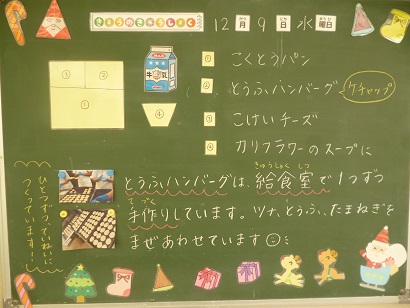 きょうのきゅうしょく
12月9日水曜日
がつ にち ようび
① ② ③ ④
牛乳
① こくとうパン
② とうふハンバーグ ケチャップ
③ こけいチーズ
④ カリフラワーのスープに
とうふハンバーグは、給食室で1つずつ
きゅうしょくしつ
手作りしています。ツナ、とうふ、たまねぎを
てづく
まぜあわせています
ひとつずつていねいに
つくっています!